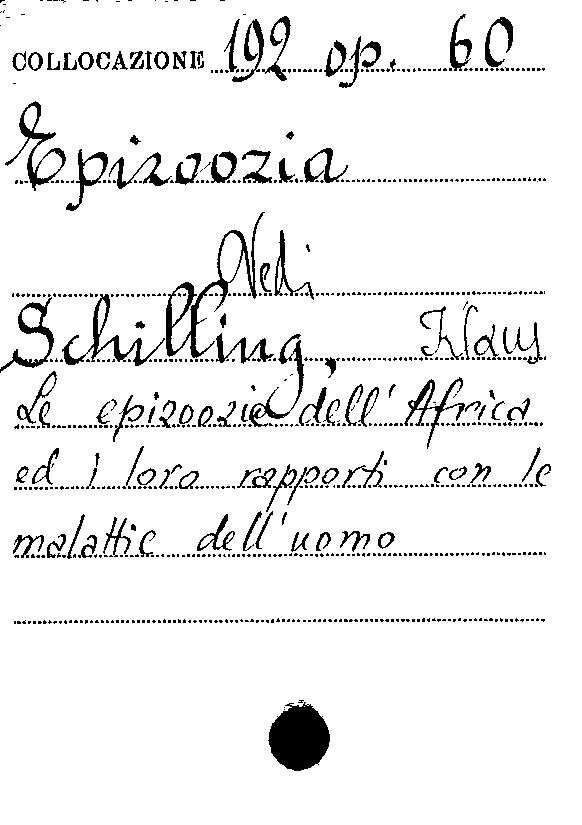 COLLOCAZIONE 192 op. 60
Epizoozia
Vedi
Schilling, Klaus
Le epizoozie dell'Africa
ed i loro rapporti con le
malattie dell'uomo